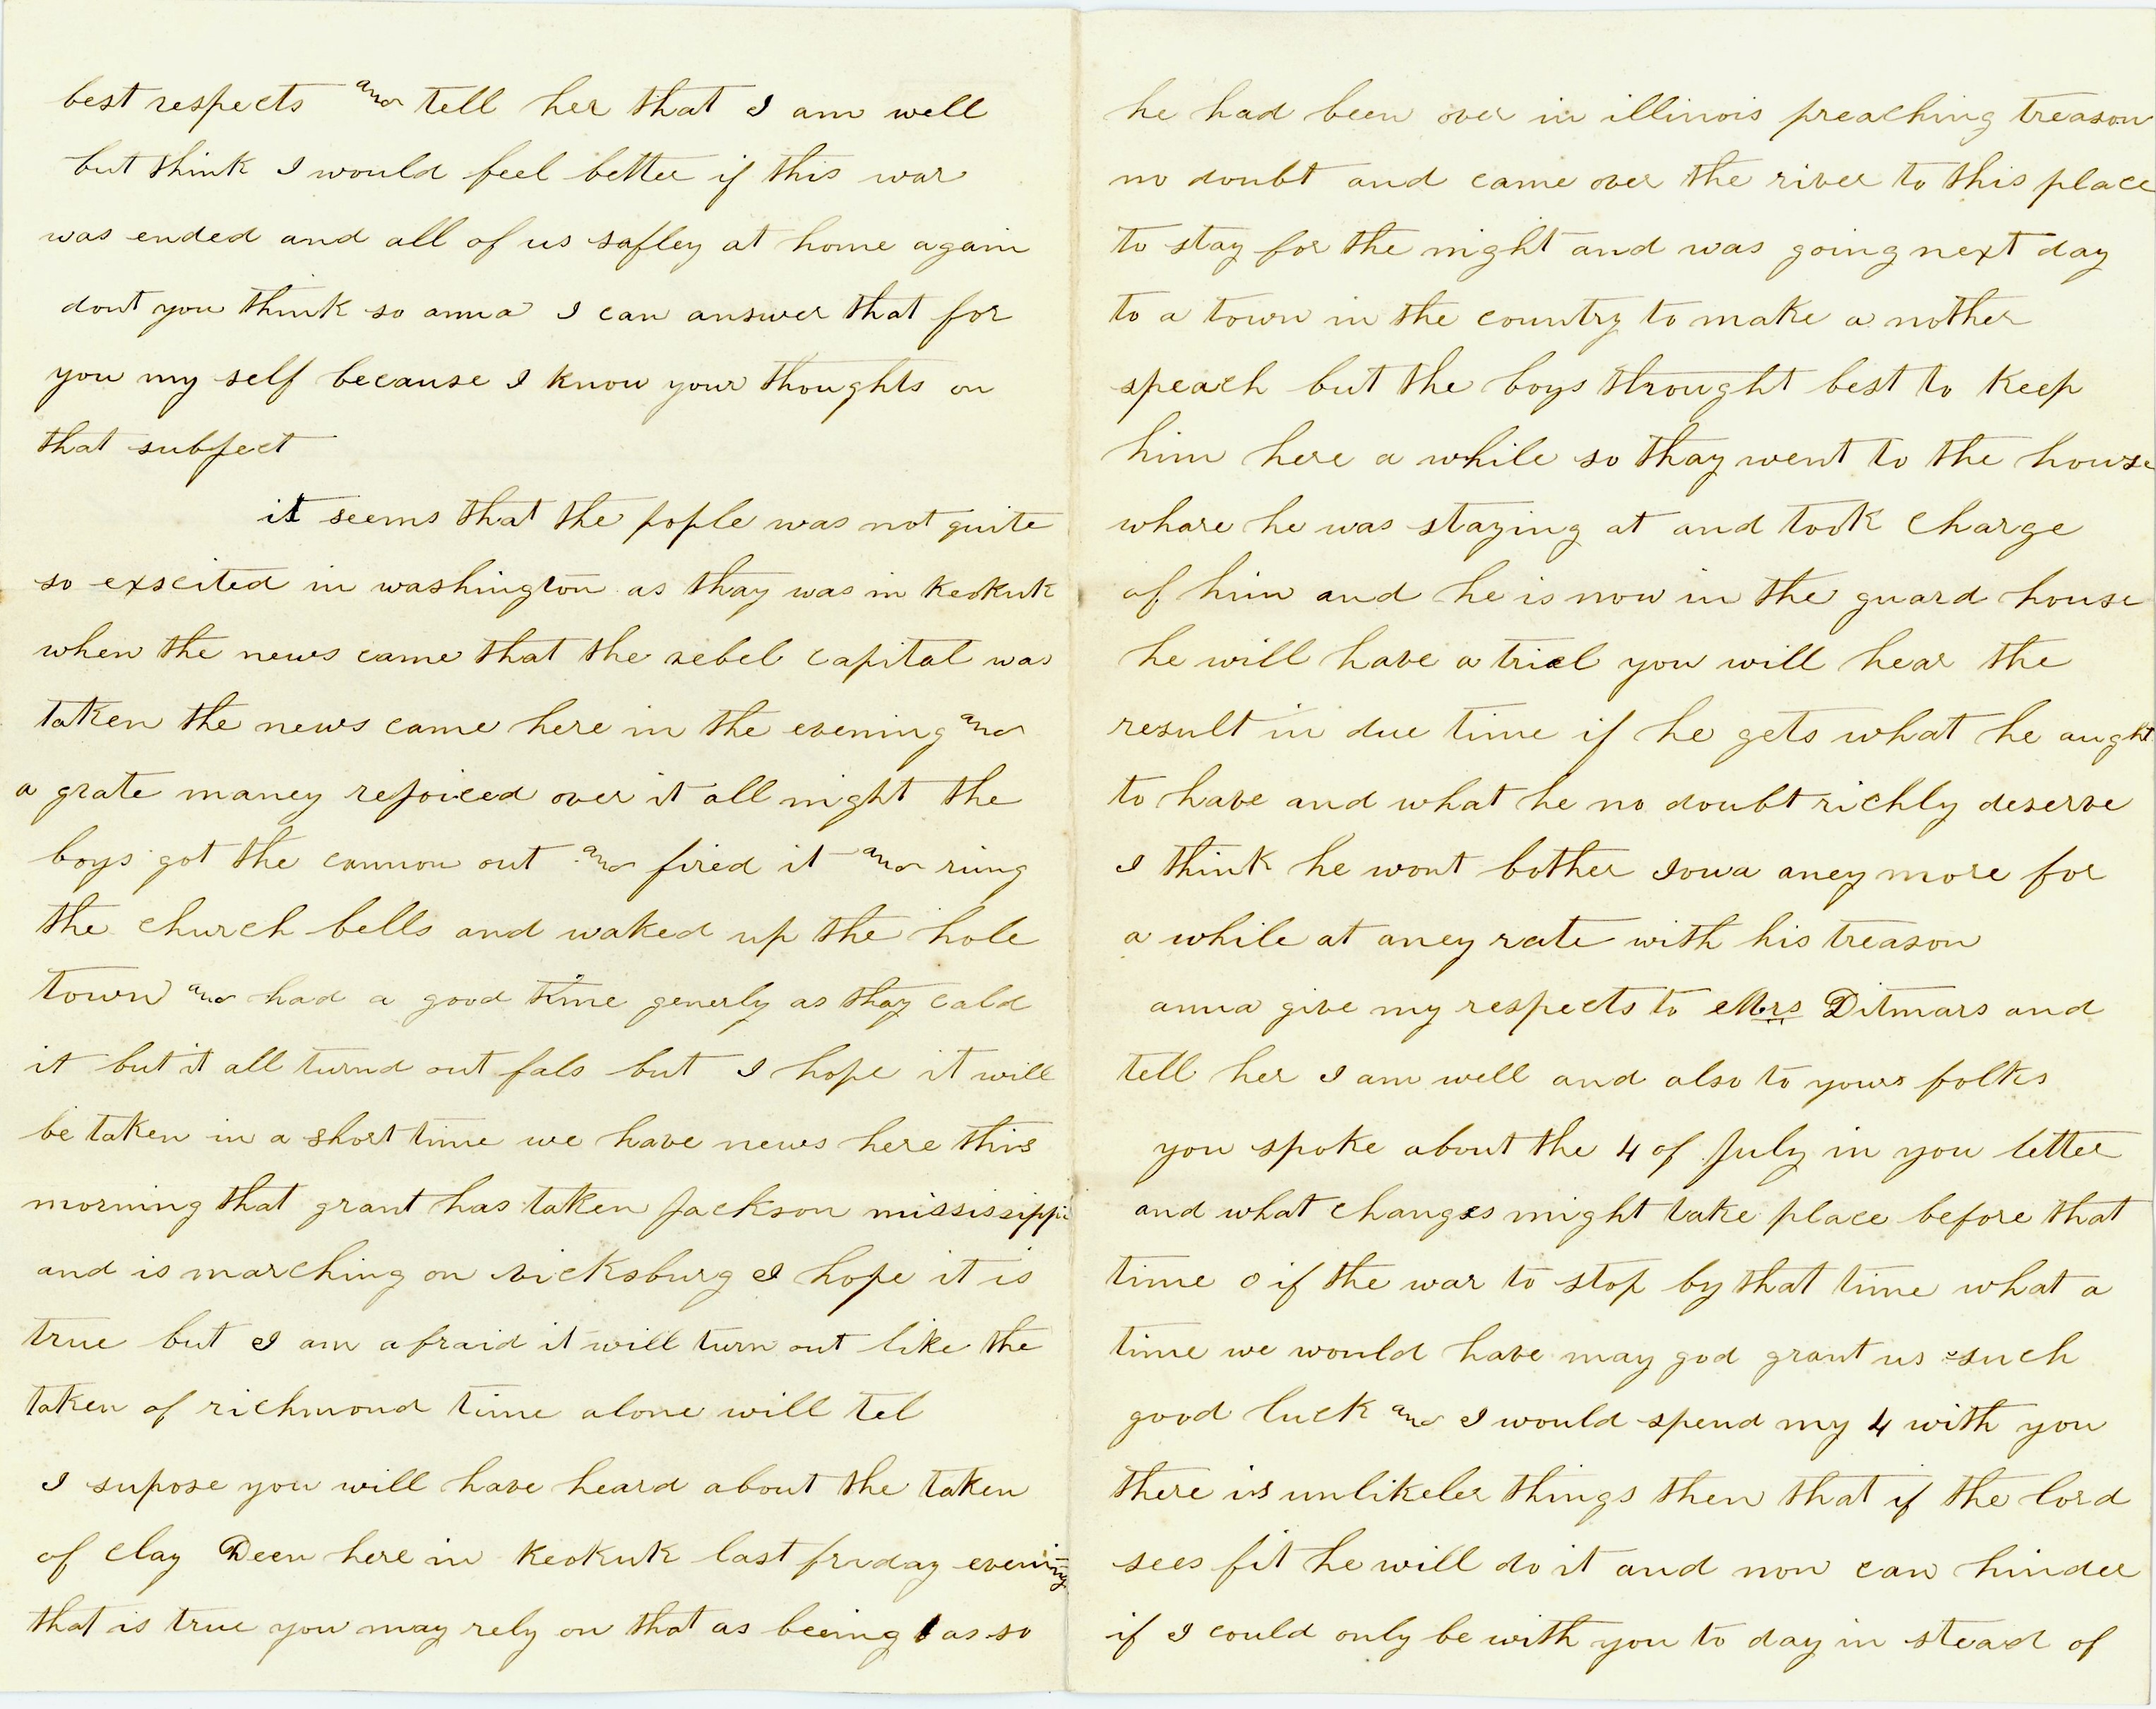 best respects and tell her that I am well
but think I would feel better if this war
was ended and all of us safley at home again
dont you think so anna I can answer that for
you my self because I know your thoughts on
that subject
it seems that the pople was not quite
so exscited in washington as thay was in Keokuk
when the news came that the rebel capital was
taken the news came here in the evening and
a grate maney rejoiced over it all night the
boys got the cannon out and fired it and ring
the church bells and waked up the hole
town and had a good time generly as thay cald
it but it all turnd out fals but I hope it will
be taken in a short time we have news here this
morning that grant has taken Jackson mississippi
and is marching on vicksburg I hope it is
true but I am afraid it will turn out like the
taken of richmond time alone will tel
I supose you will have heard about the taken
of clay Deen here in Keokuk last friday evening
that is true you may rely on that as beeing as so
he had been over in illinois preaching treason
no doubt and came over the river to this place
to stay for the night and was going next day
to a town in the country to make a nother
speach but the boys throught best to Keep
him here a while so thay went to the house
whare he was staying at and took charge
of him and he is now in the guard house
he will have a triel you will hear the
result in due time if he gets what he aught
to have and what he no doubt richly deserve
I think he wont bother Iowa aney more for
a while at aney rate with his treason
anna give my respects to Mrs Ditmars and
tell her I am well and also to yours folks
you spoke about the 4 of July in you letter
and what changes might take place before that
time o if the war to stop by that time what a
time we would have may god grant us such
good luck and I would spend my 4 with you
there is unlikeler things then that if the lord
sees fit he will do it and non can hinder
if I could only be with you to day in stead of